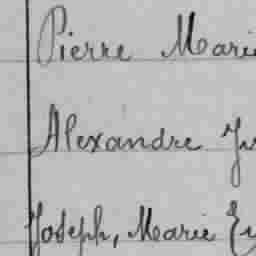 Pierre Marie
Alexandre
Joseph, Marie